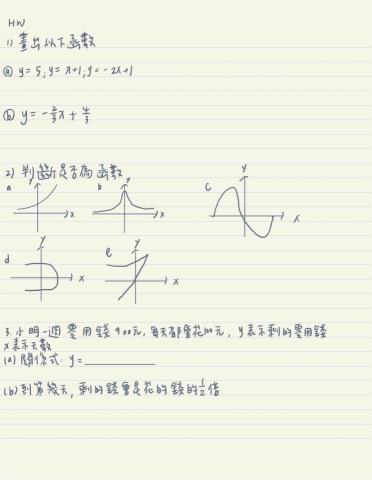 HW
1) 畫出以下函數
ⓐ y=5, y=x+1, y=-2x+1
ⓑ y=-2/3x+4/3
2) 判斷是否為函數
a y x b y x c y x
d y x e y x
3. 小明一週零用錢900元, 每天都會花100元, y表示剩的零用錢
x表示天數
(a) 關係式: y=
(b) 到第幾天, 剩的錢會是花的錢的1/2倍